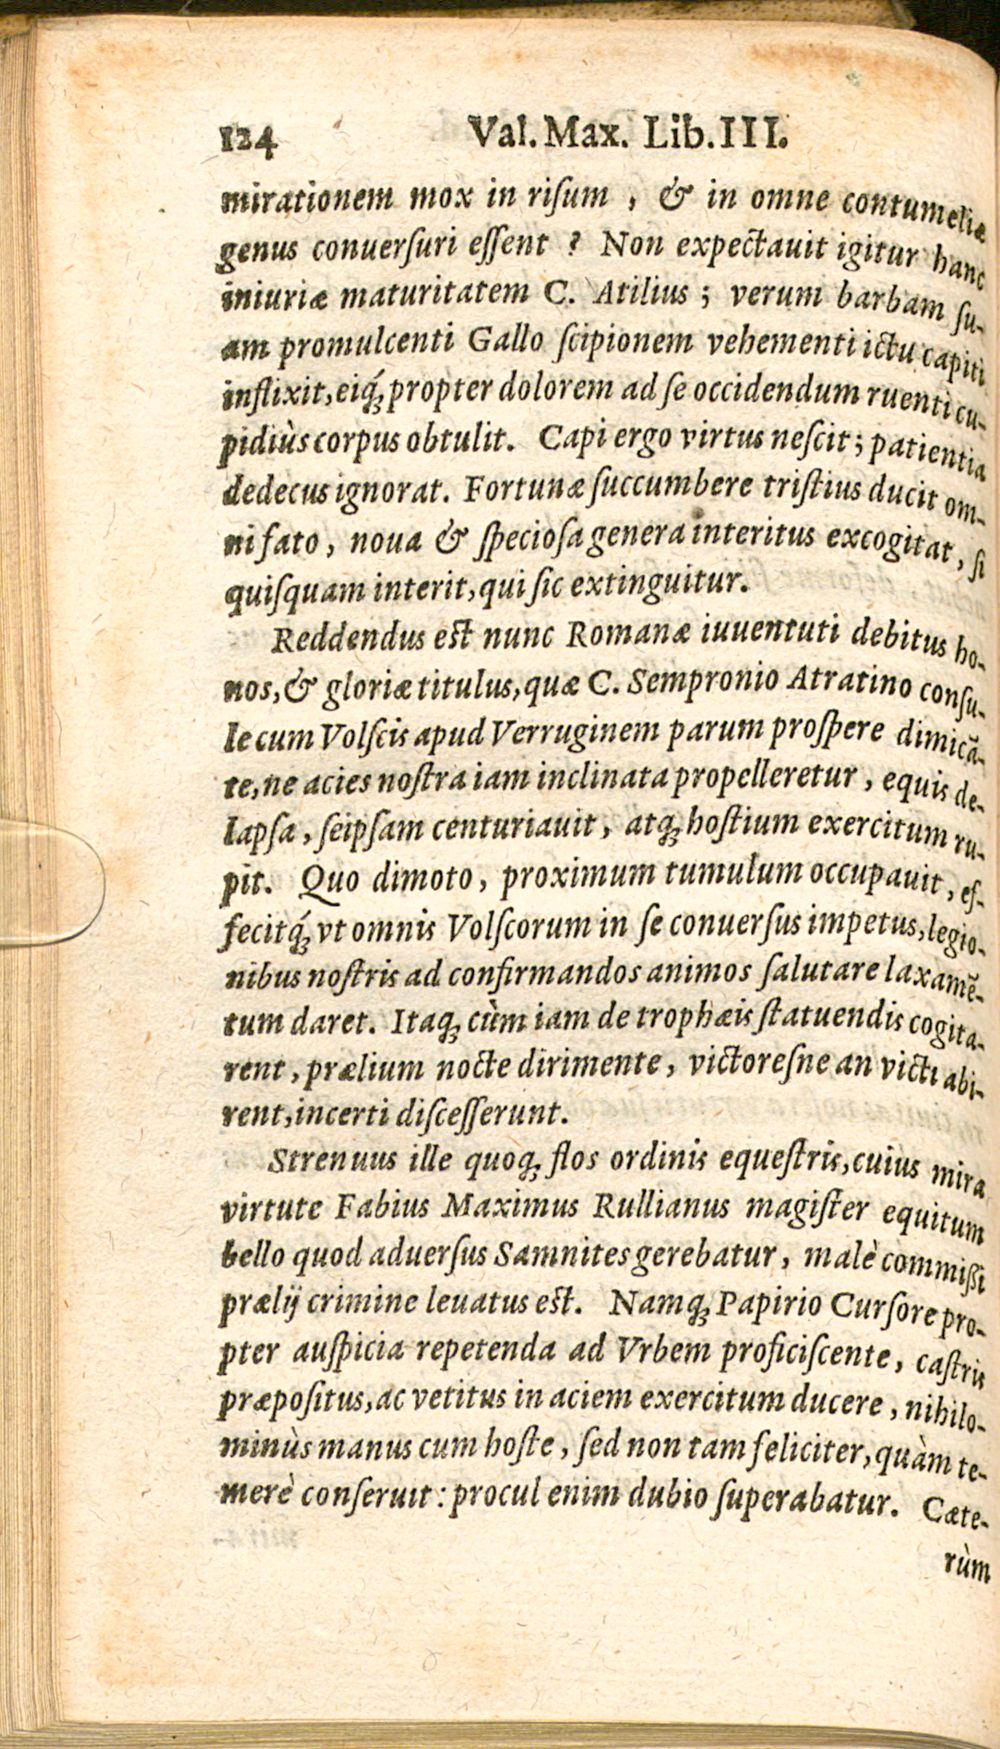 124 Val. Max. Lib. III.
mirationem mox in riſum, & in omne contumeliæ
genus conuerſuri eſſent? Non expectauit igitur hanc
iniuriæ maturitatem C. Atilius; verum barbam ſu-
am promulcenti Gallo ſcipionem vehementi ictu capiti
inflixit, eiq́ꝫ propter dolorem ad ſe occidendum ruenti cu-
pidiùs corpus obtulit. Capi ergo virtus neſcit; patientia
dedecus ignorat. Fortunæ ſuccumbere triſtius ducit om-
ni fato, noua & ſpecioſa genera interitus excogitat, ſi
quiſquam interit, qui ſic extinguitur.
Reddendus eſt nunc Romanæ iuuentuti debitus ho-
nos, & gloriæ titulus, quæ C. Sempronio Atratino conſu-
le cum Volſcis apud Verruginem parum proſpere dimicã-
te, ne acies noſtra iam inclinata propelleretur, equis de-
lapſa, ſeipſam centuriauit, atqꝫ hoſtium exercitum ru-
pit. Quo dimoto, proximum tumulum occupauit, ef-
fecitq́ꝫ vt omnis Volſcorum in ſe conuerſus impetus, legio-
nibus noſtris ad confirmandos animos ſalutare laxamẽ-
tum daret. Itaqꝫ cùm iam de trophæis ſtatuendis cogita-
rent, prælium nocte dirimente, victoreſne an victi abi-
rent, incerti diſceſſerunt.
Strenuus ille quoqꝫ flos ordinis equeſtris, cuius mira
virtute Fabius Maximus Rullianus magiſter equitum
bello quod aduerſus Samnites gerebatur, malè commiſſi
prælij crimine leuatus eſt. Namqꝫ Papirio Curſore pro-
pter auſpicia repetenda ad Vrbem proficiſcente, caſtris
præpoſitus, ac vetitus in aciem exercitum ducere, nihilo-
minùs manus cum hoſte, ſed non tam feliciter, quàm te-
merè conſeruit: procul enim dubio ſuperabatur. Cæte-
rùm